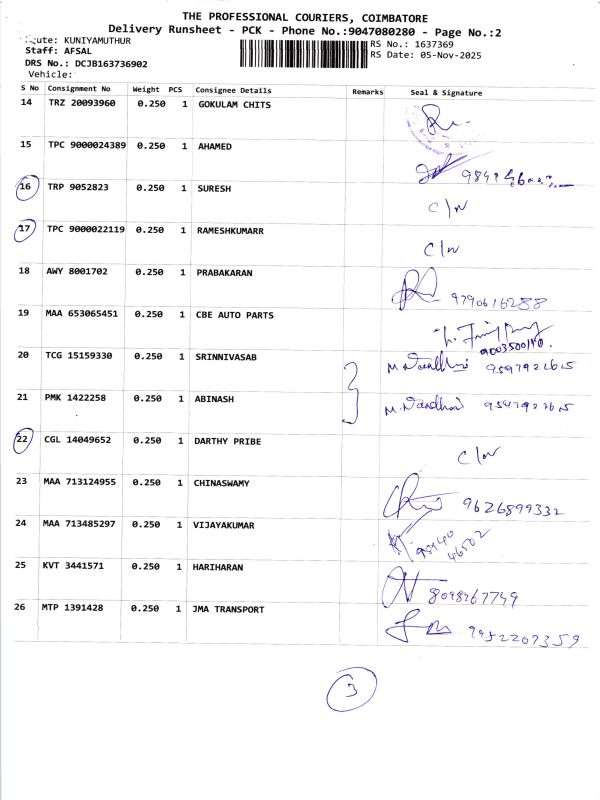 THE PROFESSIONAL COURIERS, COIMBATORE
Delivery Runsheet - PCK - Phone No.:9047080280 - Page No.:2
ute: KUNIYAMUTHUR RS No.: 1637369
Staff: AFSAL RS Date: 05-Nov-2025
DRS No.: DCJB163736902
Vehicle:
S No Consignment No Weight PCS Consignee Details Remarks Seal & Signature
14 TRZ 20093960 0.250 1 GOKULAM CHITS
15 TPC 9000024389 0.250 1 AHAMED
16 TRP 9052823 0.250 1 SURESH C/N
17 TPC 9000022119 0.250 1 RAMESHKUMARR C/N
18 AWY 8001702 0.250 1 PRABAKARAN 9790616288
19 MAA 653065451 0.250 1 CBE AUTO PARTS 9003500140.
20 TCG 15159330 0.250 1 SRINNIVASAB M. Nandhini
21 PMK 1422258 0.250 1 ABINASH M. Nandhini
22 CGL 14049652 0.250 1 DARTHY PRIBE C/N
23 MAA 713124955 0.250 1 CHINASWAMY 9626899332
24 MAA 713485297 0.250 1 VIJAYAKUMAR 98940 46502
25 KVT 3441571 0.250 1 HARIHARAN 8098267749
26 MTP 1391428 0.250 1 JMA TRANSPORT 9952207359
3